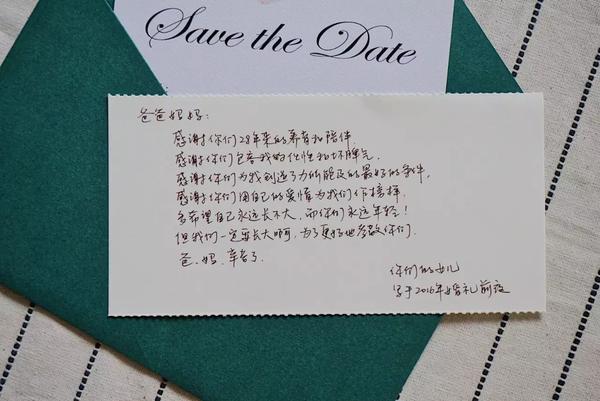 Save the Date
爸爸妈妈:
感谢你们28年来的养育和陪伴.
感谢你们包容我的任性和坏脾气.
感谢你们为我创造了力所能及的最好的条件,
感谢你们用自己的爱情为我们作榜样.
多希望自己永远长不大,而你们永远年轻!
但我们一定要长大啊,为了更好地孝敬你们.
爸、妈、辛苦了.
你们的女儿
写于2016年婚礼前夜